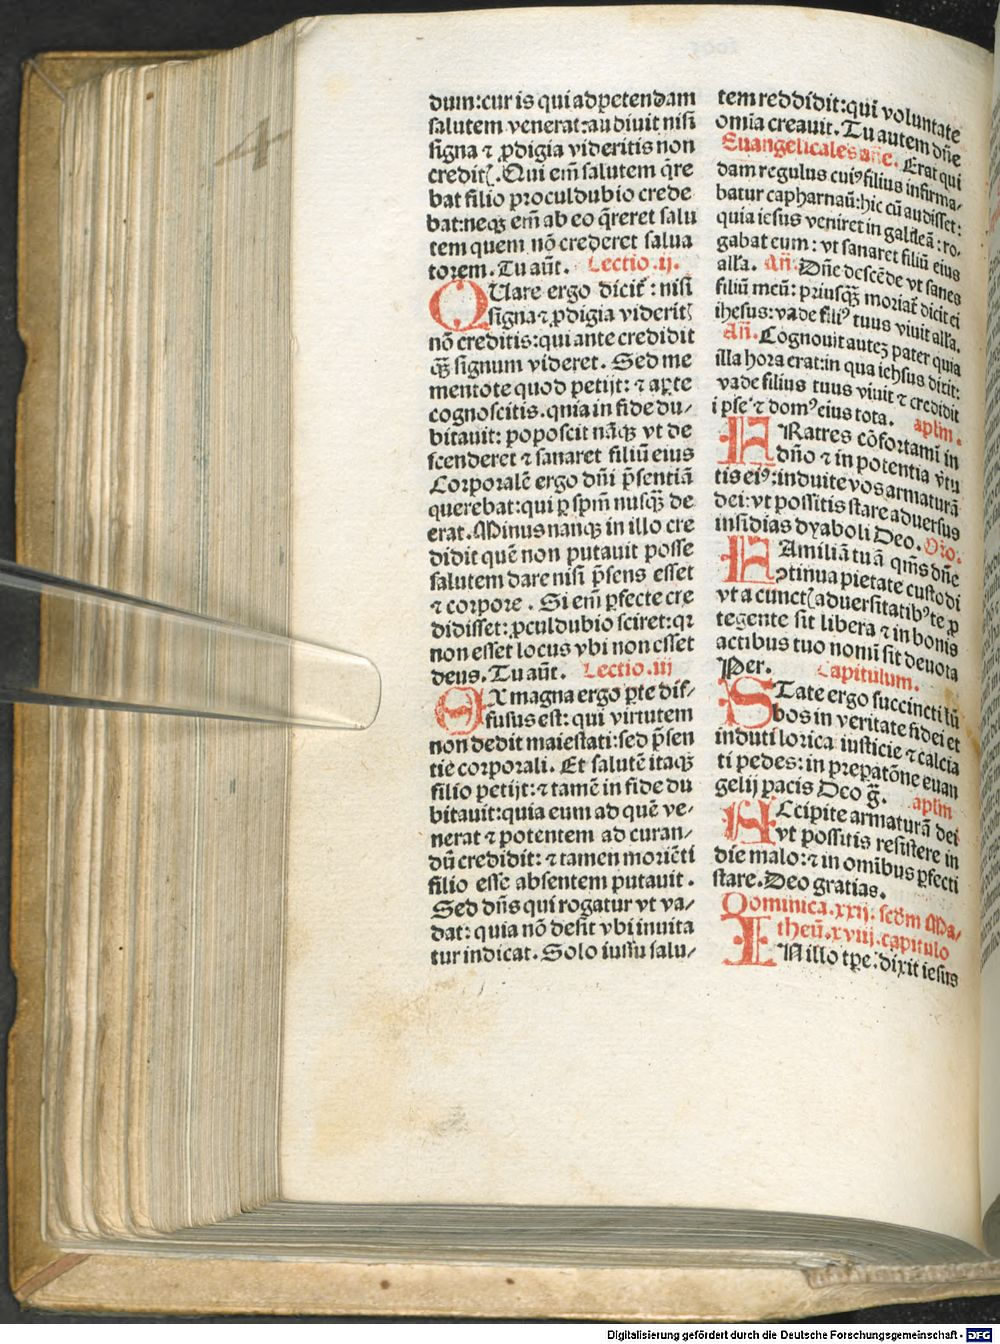 dum:cur is qui ad petendam
salutem venerat:audiuit nisi
signa ⁊ ꝓdigia videritis non
creditꝭ. Qui em̄ salutem q̄re
bat filio proculdubio crede
bat:neqꝫ em̄ ab eo q̄reret salu
tem quem nō crederet salua
torem. Tu aūt. Lectio .ij.
QUare ergo dicit̄: nisi
signa ⁊ ꝓdigia videritꝭ
nō creditis:qui ante credidit
qꝫ̄ signum videret. Sed me
mentote quod petijt: ⁊ aꝑte
cognoscitis. quia in fide du-
bitauit: poposcit nāqꝫ vt de
scenderet ⁊ sanaret filiū eius
Corporalē ergo dn̄i p̄sentiā
querebat:qui ꝑ sp̄m nusqꝫ̄ de
erat. Minus nanqꝫ in illo cre
didit quē non putauit posse
salutem dare nisi p̄sens esset
⁊ corpore. Si em̄ ꝑfecte cre
didisset:ꝓculdubio sciret:qꝛ
non esset locus vbi non esset
deus. Tu aūt. Lectio .iij
EX magna ergo ꝑte dif-
fusus est: qui virtutem
non dedit maiestati:sed p̄sen
tie corporali. Et salutē itaqꝫ
filio petijt:⁊ tamē in fide du
bitauit:quia eum ad quē ve-
nerat ⁊ potentem ad curan-
dū credidit: ⁊ tamen moriēti
filio esse absentem putauit.
Sed dn̄s qui rogatur vt va-
dat: quia nō desit vbi inuita
tur indicat. Solo iussu salu-
tem reddidit:qui voluntate
omīa creauit. Tu autem dn̄e
Euangelicales añe. Erat qui
dam regulus cuiꝰ filius infirma-
batur capharnaū:hic cū audisset:
quia iesus veniret in galileā: ro-
gabat eum: vt sanaret filiū eius
alła. Añ. Dn̄e descēde vt sanes
filiū meū: priusqꝫ̄ moriat̄ dicit ei
ihesus:vade filiꝰ tuus viuit alła.
Añ. Cognouit auteꝫ pater quia
illa hora erat:in qua iehsus dixit:
vade filius tuus viuit ⁊ credidit
ipse ⁊ domꝰ eius tota. apłm.
FRatres cōfortamī in
dn̄o ⁊ in potentia v̄tu
tis eiꝰ:induite vos armaturā
dei:vt possitis stare aduersus
insidias dyaboli Deo. Oro.
FAmiliā tuā qm̄s dn̄e
ꝯtinua pietate custodi
vt a cunctꝭ aduersitatibꝰ te ꝓ
tegente sit libera ⁊ in bonis
actibus tuo nomī sit deuota
Per. Capitulum.
STate ergo succincti lū
bos in veritate fidei et
induti lorica iusticie ⁊ calcia
ti pedes: in preparatōne euan
gelij pacis Deo g̃. apłm
ACcipite armaturā dei
vt possitis resistere in
die malo:⁊ in omībus ꝑfecti
stare. Deo gratias.
Dominica .xxij. scdm Ma-
theū .xviij. capitulo
IN illo tꝑe: dixit iesus
4
Digitalisierung gefördert durch die Deutsche Forschungsgemeinschaft - DFG